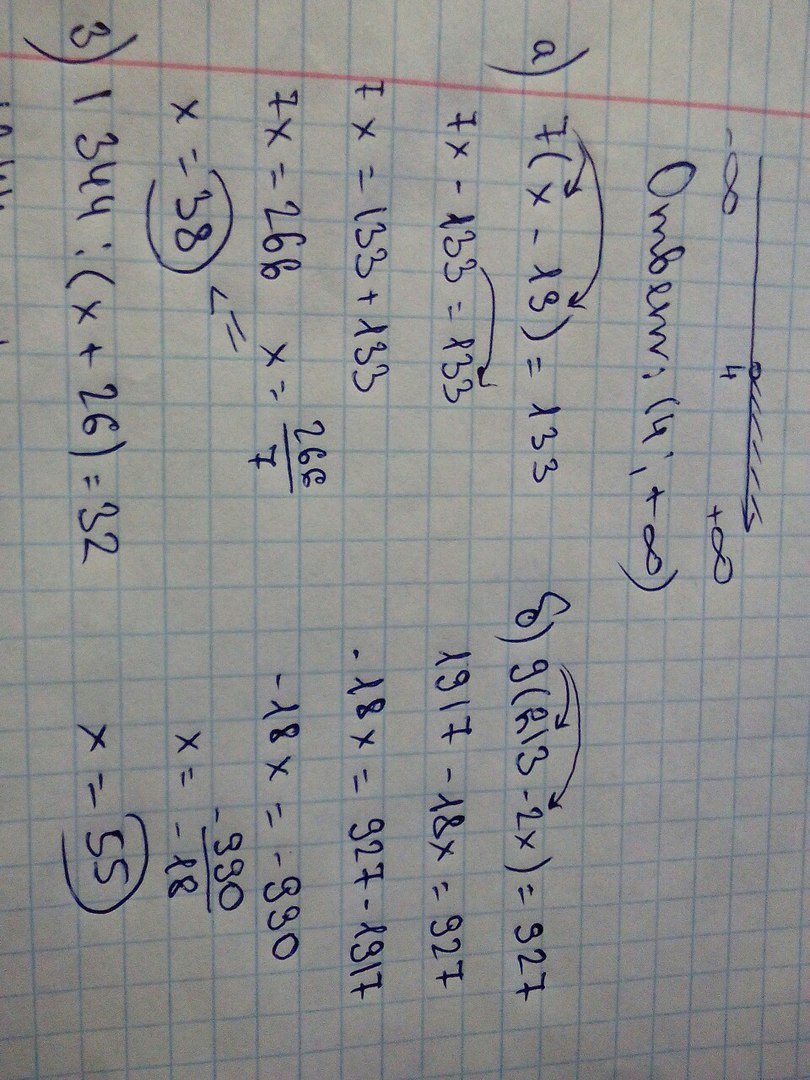 -∞ 4 +∞
Ответ: (4; +∞)
а) 7(x - 19) = 133
7x - 133 = 133
7x = 133 + 133
7x = 266 x = 266/7
x = 38 <=
б) 9(213 - 2x) = 927
1917 - 18x = 927
-18x = 927 - 1917
-18x = -990
x = -990/-18
x = 55
3) 1344 : (x + 26) = 32